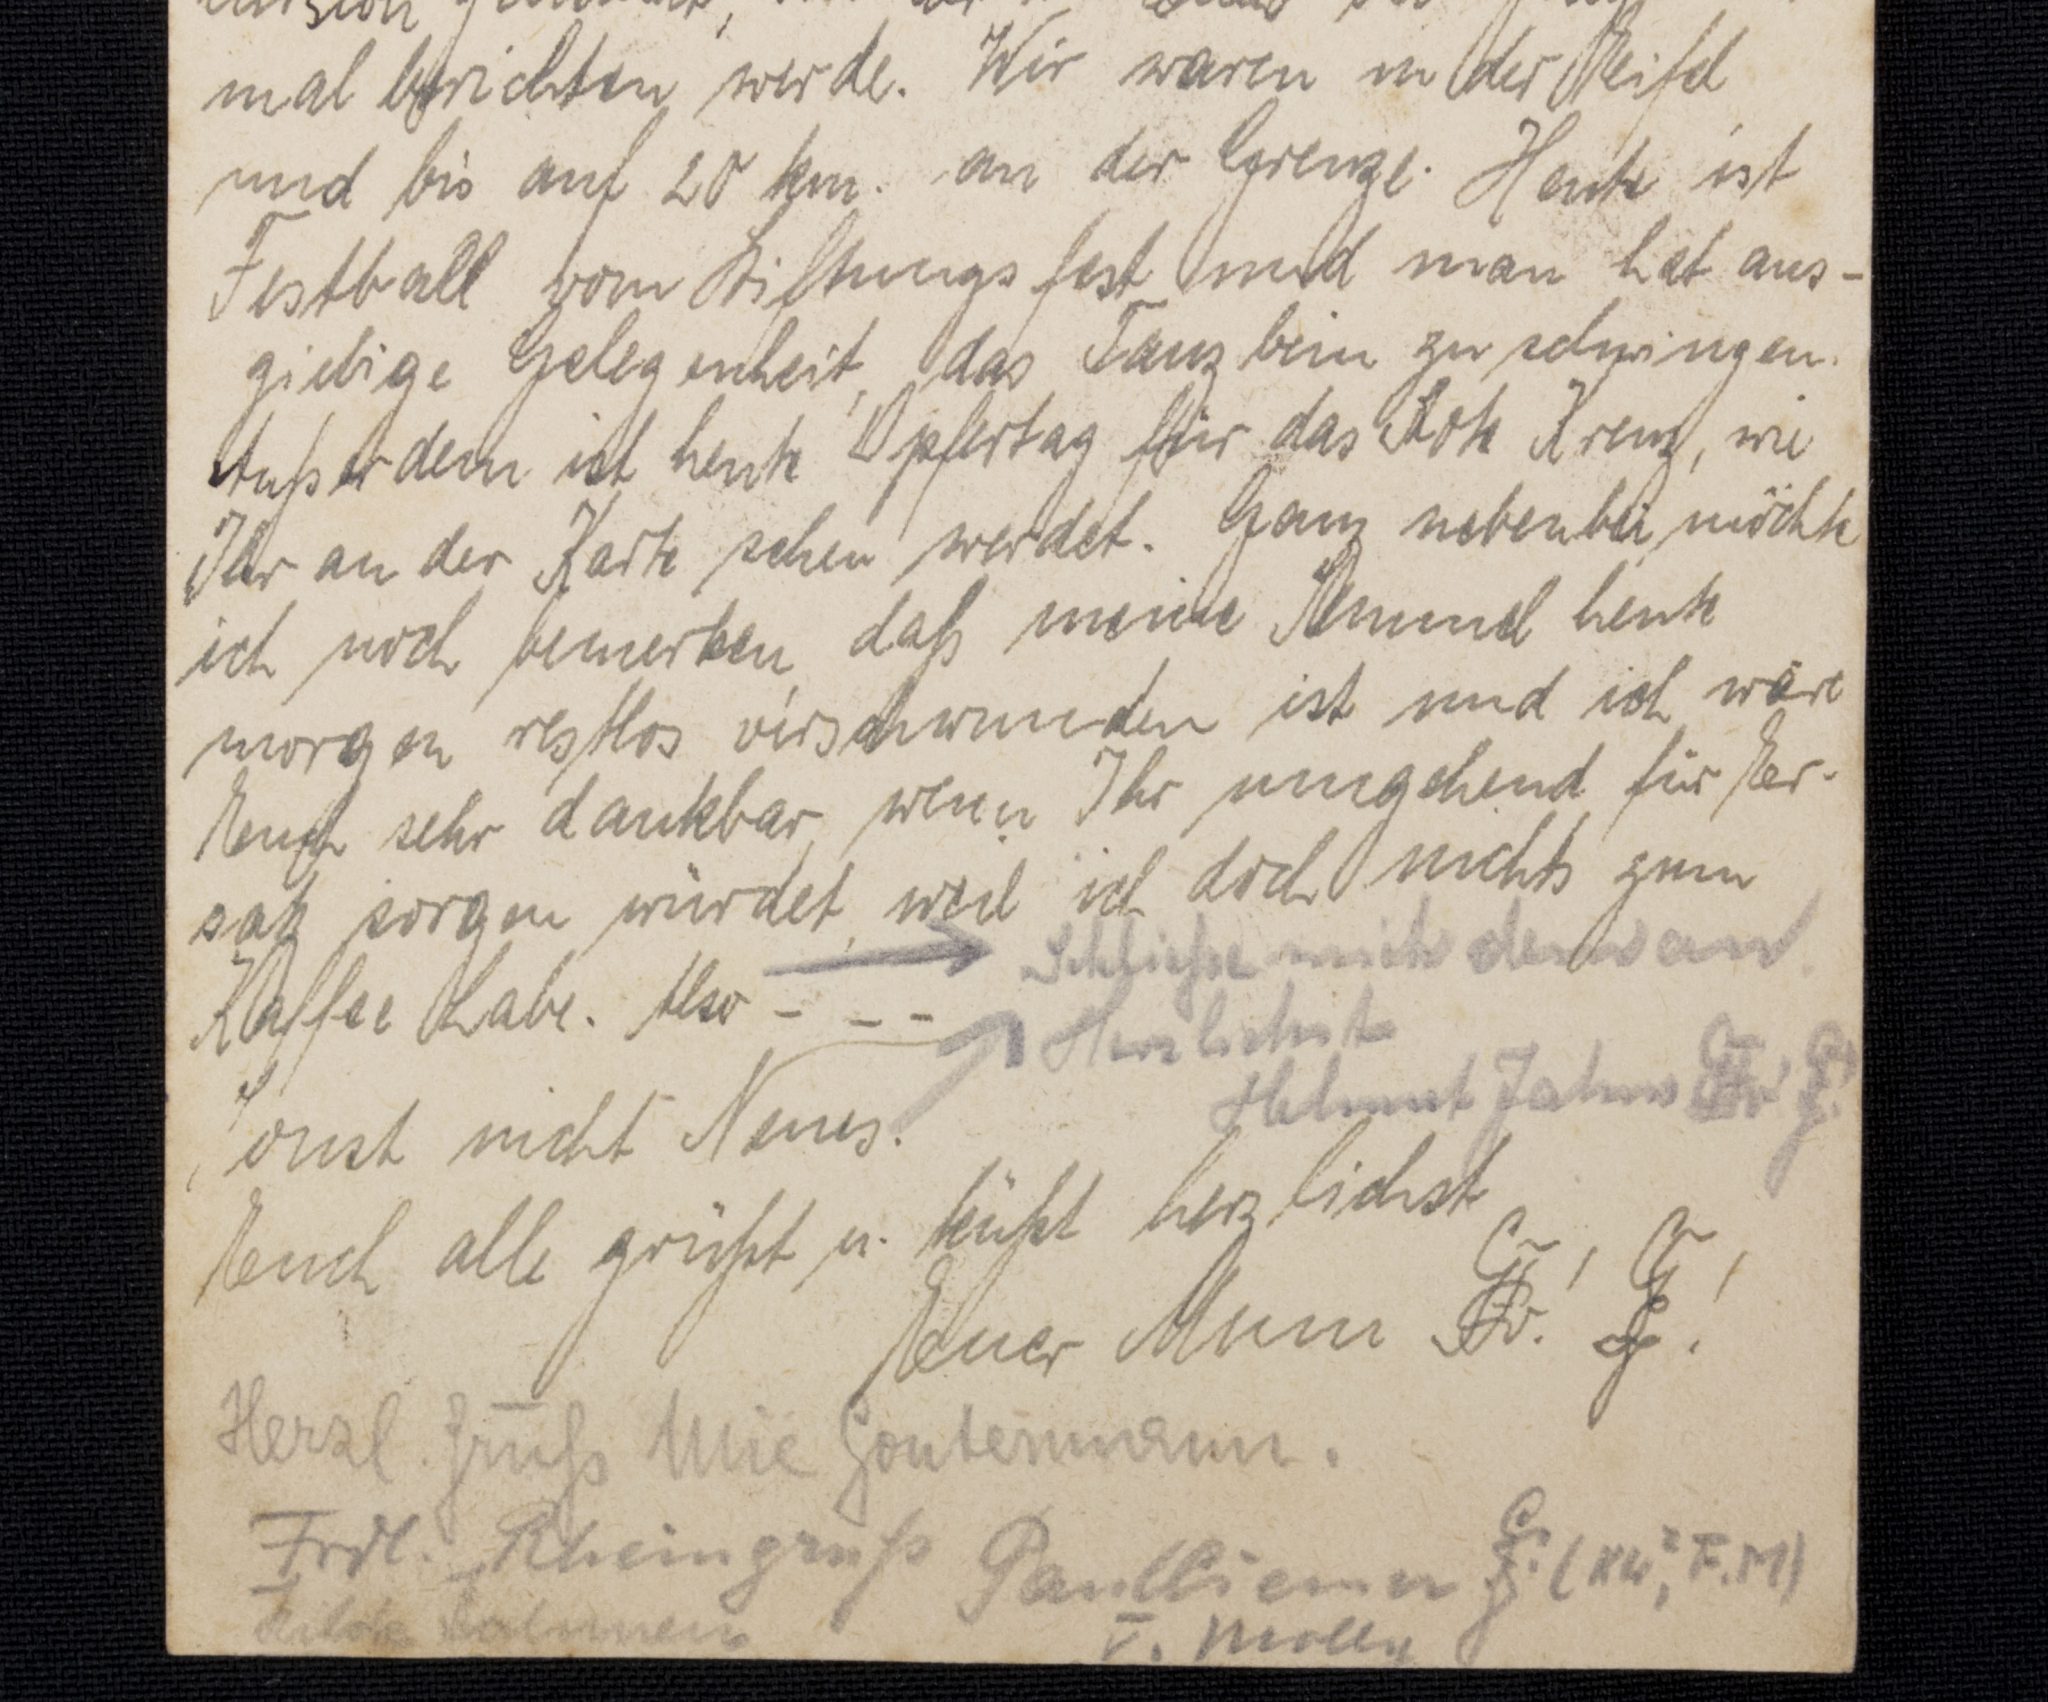 mal berichten werde. Wir waren in der Eifel
und bis auf 20 km. an der Grenze. Heute ist
Festball vom Stiftungsfest und man hat aus-
giebige Gelegenheit, das Tanzbein zu schwingen.
Außerdem ist heute Opfertag für das Rote Kreuz, wie
Ihr an der Karte sehen werdet. Ganz nebenbei möchte
ich noch bemerken, daß meine Memmel heute
morgen restlos verschwunden ist und ich wäre
Euch sehr dankbar, wenn Ihr umgehend für Er-
satz sorgen würdet, weil ich doch nichts zum
Kaffee habe. Also - - -
Schließe mich dem an.
Herzlichst
Helmut Jahns
Sonst nicht Neues.
Euch alle grüßt u. küßt herzlichst
Euer Mum
Herzl. Gruß Mie Gontermann.
Frdl. Rheingruß Paul (XX², F.M)